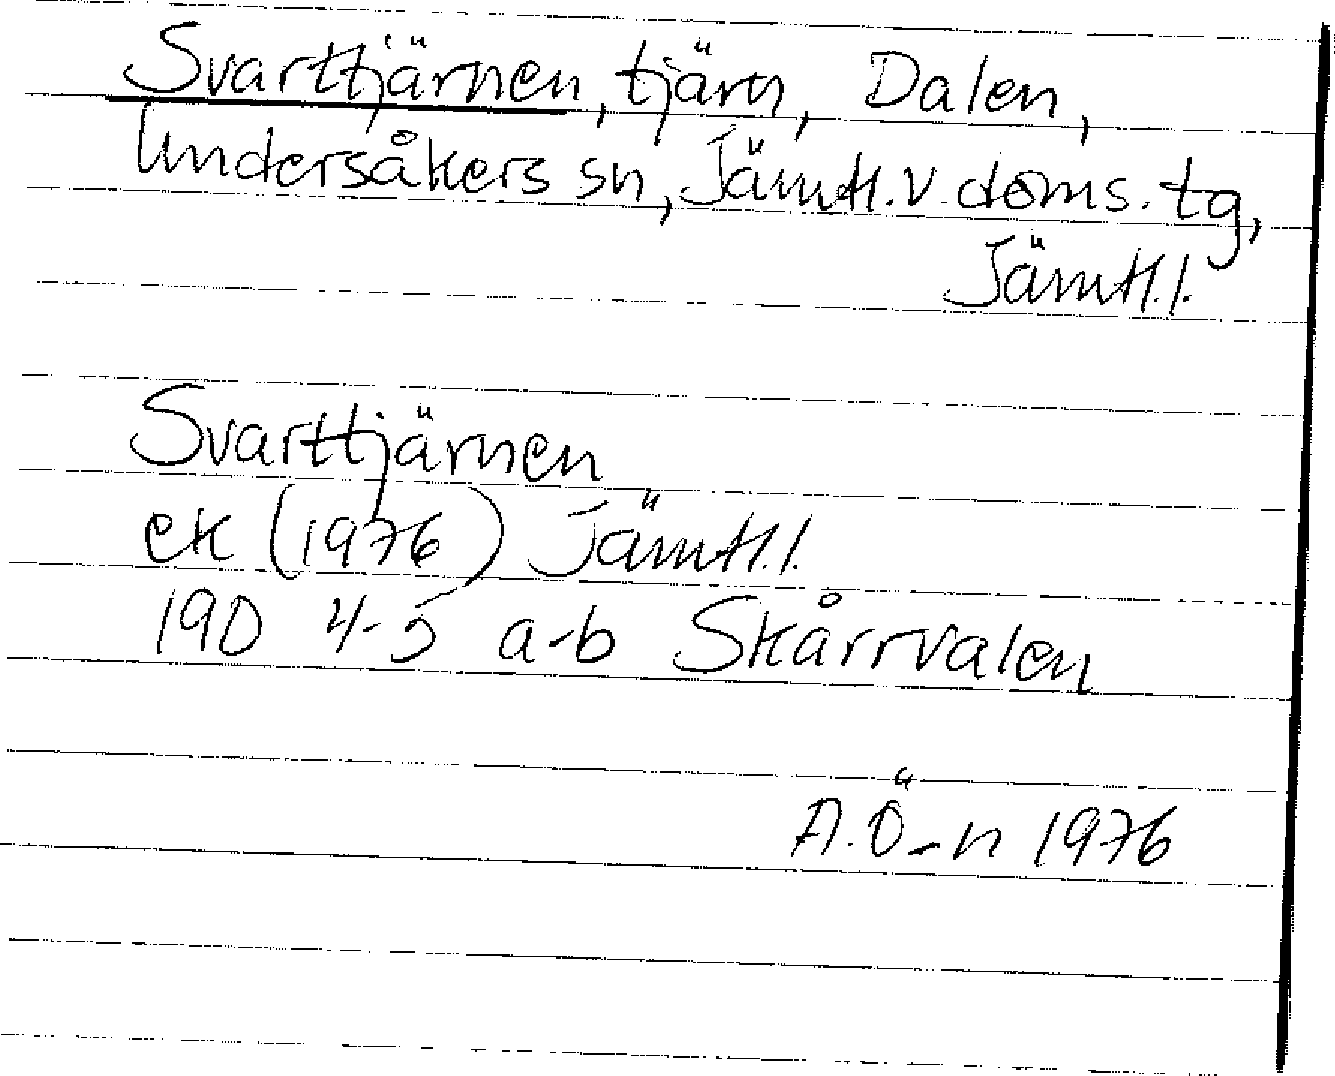 Svarttjärnen, tjärn, Dalen,
Undersåkers sn, Jämtl. v. doms. tg,
Jämtl.l.
Svarttjärnen
ek (1976) Jämtl.l.
19D 4-5 a-b Skårrvalen
A.Ö-n 1976